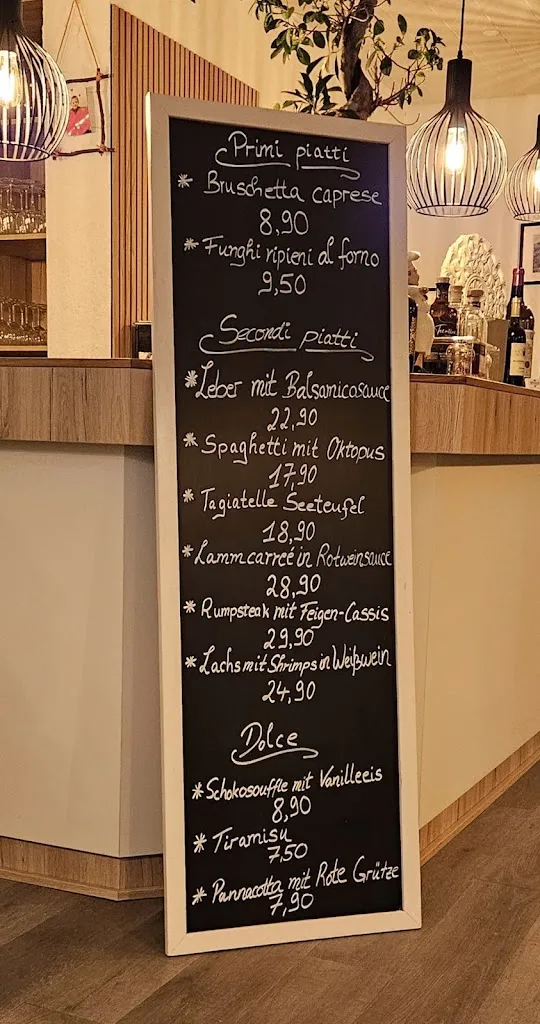 Primi piatti
* Bruschetta caprese
8,90
* Funghi ripieni al forno
9,50
Secondi piatti
* Leber mit Balsamicosauce
22,90
* Spaghetti mit Oktopus
17,90
* Tagiatelle Seeteufel
18,90
* Lammcarreé in Rotweinsauce
28,90
* Rumpsteak mit Feigen-Cassis
29,90
* Lachs mit Shrimps in Weißwein
24,90
Dolce
* Schokosouffle mit Vanilleeis
8,90
* Tiramisu
7,50
* Pannacotta mit Rote Grütze
7,90